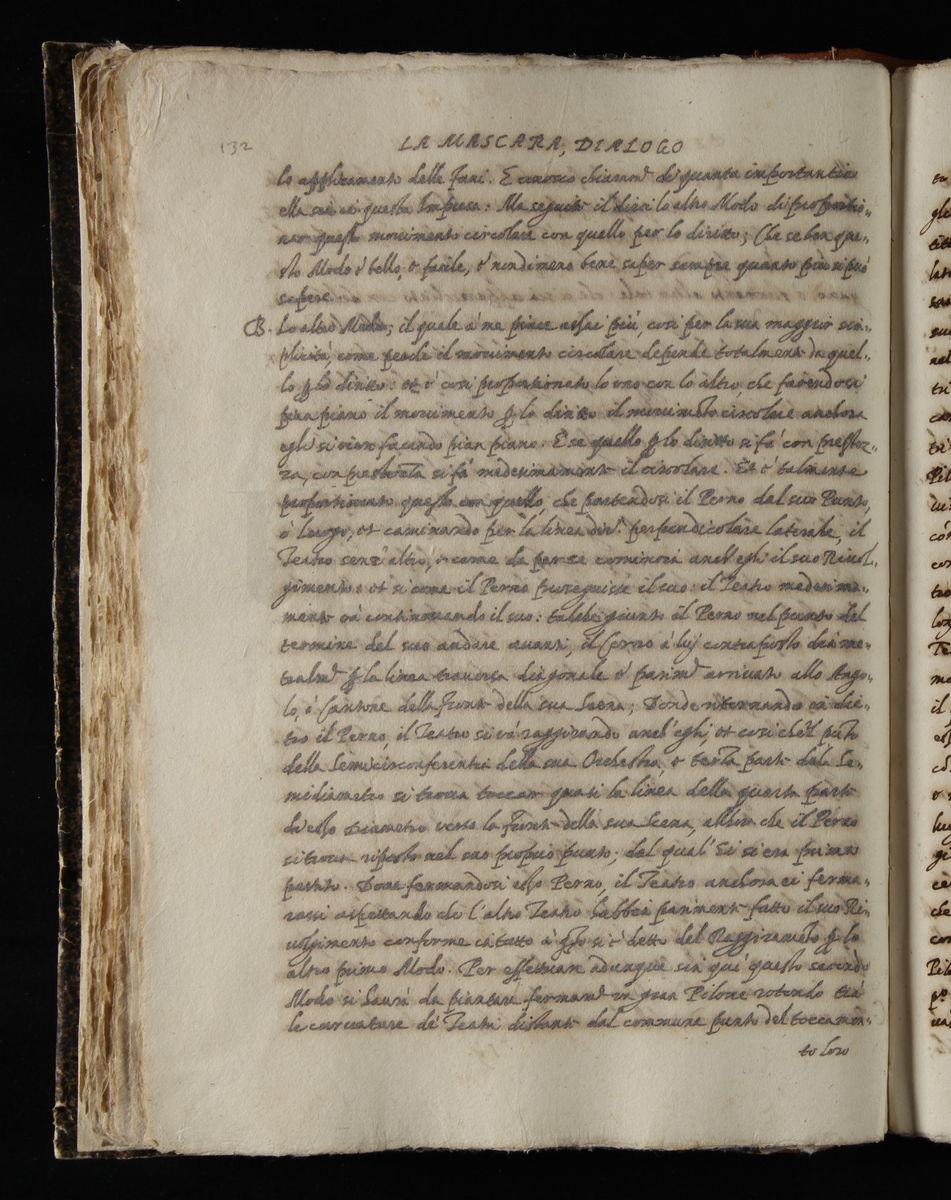 132
LA MASCARA, DIALOGO
lo applicamento delle funi. E conosco chiaram.te di quanta importantia
ella sia in questa Impresa: Ma seguite il dirci lo altro Modo di proportio-
nar questo movimento circolare con quello per lo diritto; Che se ben que-
sto Modo è bello, e facile, è nondimeno bene saper sempre quanto più si può
sapere.
B. Lo altro Modo; il quale à me piace assai più, così per la sua maggior sim-
plicità, come perche il movimento circolare depende totalmente da quel-
lo p lo diritto: et è così proportionato lo uno con lo altro, che facendosi
pian piano il movimento p lo diritto il movimẽto circolare anchora
egli si vien facendo pian piano. E se quello p lo diritto si fà con prestez-
za, con prestezza si fà medesimamente il circolare. Et è talmente
proportionato questo con quello, che partendosi il Perno dal suo Punto,
ò luogo, et caminando per la linea perpendicolare laterale, il
Teatro senz' altro, e come da per se comincia anch' egli il suo Rivol-
gimento: et si come il Perno proseguisce il suo: il Teatro medesima-
mente và continuando il suo: talche giunto il Perno nel punto del
termine del suo andare avanti, il Corno à lui contraposto diame-
tralm.te p la linea traversa diagonale è parim.te arrivato allo Ango-
lo, ò Cantone della fronte della sua Scena; Donde ritornando in die-
tro il Perno, il Teatro si và raggirando anch' egli et così che'l pũto
della Semicirconferentia della sua Orchestra, e terza parte dal Se-
midiametro si trova toccar quasi la linea della quarta parte
di esso Diametro verso la fronte della sua Scena, allhor che il Perno
si trova riposto nel suo proprio punto; del qual' si era prima
partito. Dove fermandosi esso Perno, il Teatro anchora ei ferma-
rassi aspettando che l'altro Teatro habbia parimente fatto il suo Ri-
volgimento conforme in tutto à q̃to si è detto del Raggiramẽto p lo
altro primo Modo. Per effettuare adunque sin quì questo secondo
Modo si haurà da piantare fermam.te un gran Pilone rotondo trà
le curvature de' Teatri distante dal commune punto del toccamen-
to loro